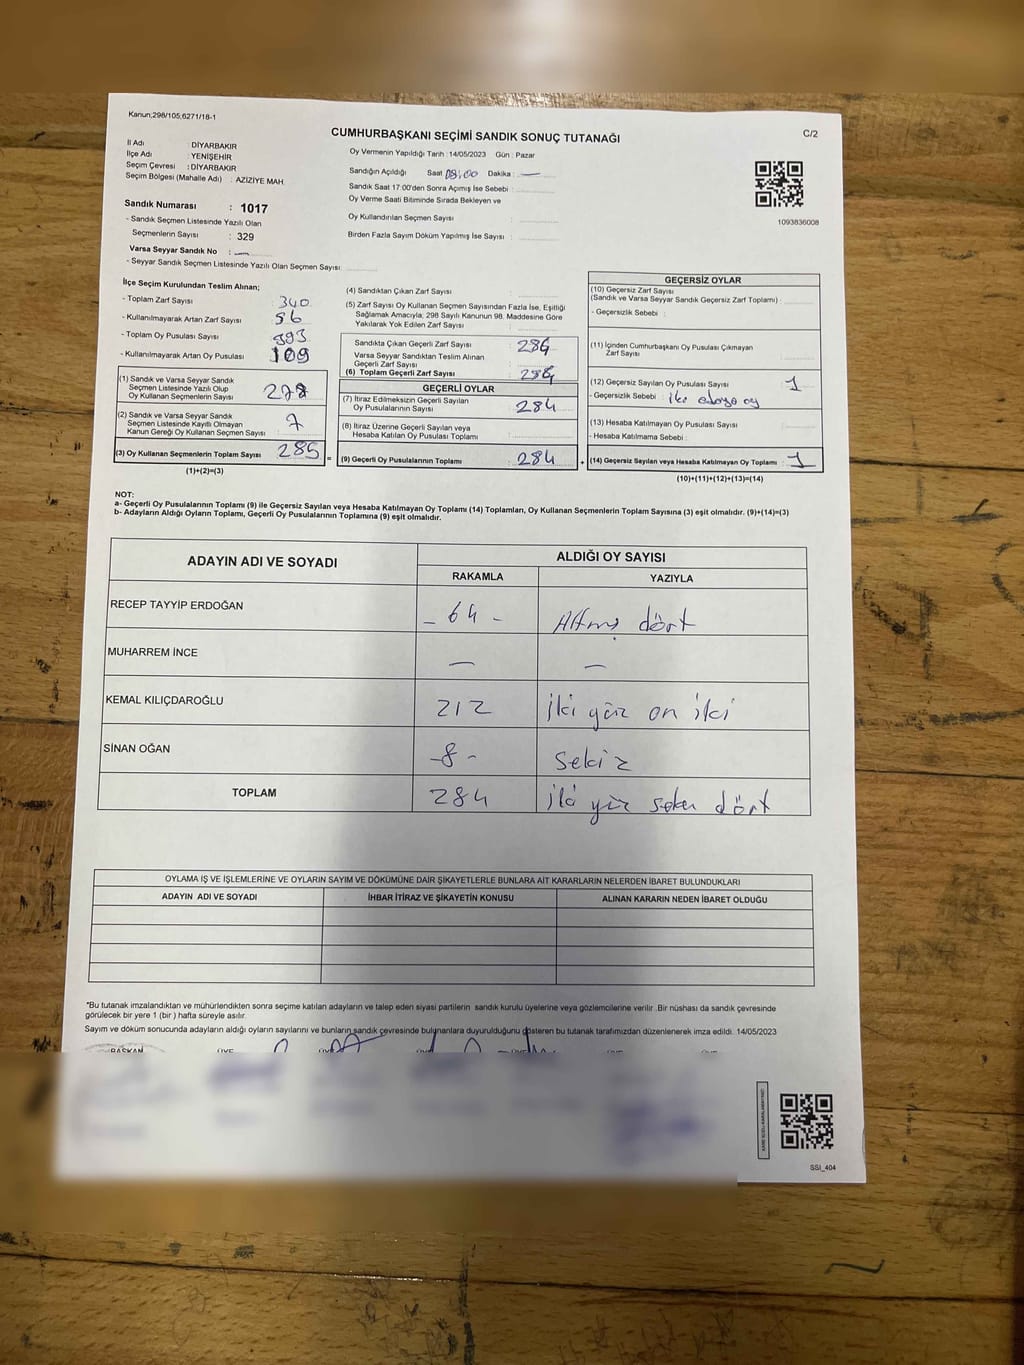 Kanun;298/105,6271/18-1
CUMHURBAŞKANI SEÇİMİ SANDIK SONUÇ TUTANAĞI
C/2
İl Adı : DİYARBAKIR
İlçe Adı : YENİŞEHİR
Seçim Çevresi : DİYARBAKIR
Seçim Bölgesi (Mahalle Adı) : AZİZİYE MAH.
Sandık Numarası : 1017
- Sandık Seçmen Listesinde Yazılı Olan
Seçmenlerin Sayısı : 329
Varsa Seyyar Sandık No : —
- Seyyar Sandık Seçmen Listesinde Yazılı Olan Seçmen Sayısı:
Oy Vermenin Yapıldığı Tarih :14/05/2023 Gün : Pazar
Sandığın Açıldığı Saat 08:00 Dakika : —
Sandık Saat 17:00'den Sonra Açımış İse Sebebi :
Oy Verme Saati Bitiminde Sırada Bekleyen ve
Oy Kullandırılan Seçmen Sayısı :
Birden Fazla Sayım Döküm Yapılmış İse Sayısı :
1093836008
İlçe Seçim Kurulundan Teslim Alınan;
- Toplam Zarf Sayısı : 340
- Kullanılmayarak Artan Zarf Sayısı : 56
- Toplam Oy Pusulası Sayısı : 393
- Kullanılmayarak Artan Oy Pusulası : 109
(1) Sandık ve Varsa Seyyar Sandık
Seçmen Listesinde Yazılı Olup
Oy Kullanan Seçmenlerin Sayısı : 278
(2) Sandık ve Varsa Seyyar Sandık
Seçmen Listesinde Kayıtlı Olmayan
Kanun Gereği Oy Kullanan Seçmen Sayısı : 7
(3) Oy Kullanan Seçmenlerin Toplam Sayısı : 285
(1)+(2)=(3)
(4) Sandıktan Çıkan Zarf Sayısı :
(5) Zarf Sayısı Oy Kullanan Seçmen Sayısından Fazla İse, Eşitliği
Sağlamak Amacıyla, 298 Sayılı Kanunun 98. Maddesine Göre
Yakılarak Yok Edilen Zarf Sayısı :
Sandıkta Çıkan Geçerli Zarf Sayısı : 284
Varsa Seyyar Sandıktan Teslim Alınan
Geçerli Zarf Sayısı :
(6) Toplam Geçerli Zarf Sayısı : 284
GEÇERLİ OYLAR
(7) İtiraz Edilmeksizin Geçerli Sayılan
Oy Pusulalarının Sayısı : 284
(8) İtiraz Üzerine Geçerli Sayılan veya
Hesaba Katılan Oy Pusulası Toplamı :
(9) Geçerli Oy Pusulalarının Toplamı : 284
GEÇERSİZ OYLAR
(10) Geçersiz Zarf Sayısı
(Sandık ve Varsa Seyyar Sandık Geçersiz Zarf Toplamı) :
- Geçersizlik Sebebi :
(11) İçinden Cumhurbaşkanı Oy Pusulası Çıkmayan
Zarf Sayısı :
(12) Geçersiz Sayılan Oy Pusulası Sayısı : 1
- Geçersizlik Sebebi : iki adaya oy
(13) Hesaba Katılmayan Oy Pusulası Sayısı :
- Hesaba Katılmama Sebebi :
(14) Geçersiz Sayılan veya Hesaba Katılmayan Oy Toplamı : 1
(10)+(11)+(12)+(13)=(14)
NOT:
a- Geçerli Oy Pusulalarının Toplamı (9) ile Geçersiz Sayılan veya Hesaba Katılmayan Oy Toplamı (14) Toplamları, Oy Kullanan Seçmenlerin Toplam Sayısına (3) eşit olmalıdır. (9)+(14)=(3)
b- Adayların Aldığı Oyların Toplamı, Geçerli Oy Pusulalarının Toplamına (9) eşit olmalıdır.
ADAYIN ADI VE SOYADI
ALDIĞI OY SAYISI
RAKAMLA YAZIYLA
RECEP TAYYİP ERDOĞAN - 64 - Altmış dört
MUHARREM İNCE — —
KEMAL KILIÇDAROĞLU 212 iki yüz on iki
SİNAN OĞAN -8- sekiz
TOPLAM 284 iki yüz seksen dört
OYLAMA İŞ VE İŞLEMLERİNE VE OYLARIN SAYIM VE DÖKÜMÜNE DAİR ŞİKAYETLERLE BUNLARA AİT KARARLARIN NELERDEN İBARET BULUNDUKLARI
ADAYIN ADI VE SOYADI İHBAR İTİRAZ VE ŞİKAYETİN KONUSU ALINAN KARARIN NEDEN İBARET OLDUĞU
*Bu tutanak imzalandıktan ve mühürlendikten sonra seçime katılan adayların ve talep eden siyasi partilerin sandık kurulu üyelerine veya gözlemcilerine verilir. Bir nüshası da sandık çevresinde
görülecek bir yere 1 (bir ) hafta süreyle asılır.
Sayım ve döküm sonucunda adayların aldığı oyların sayılarını ve bunların sandık çevresinde bulunanlara duyurulduğunu gösteren bu tutanak tarafımızdan düzenlenerek imza edildi. 14/05/2023
BAŞKAN ÜYE
SSI_404